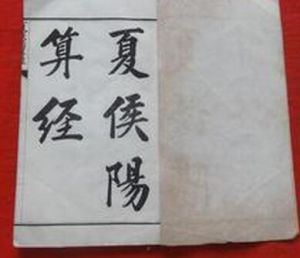 夏侯陽
算经